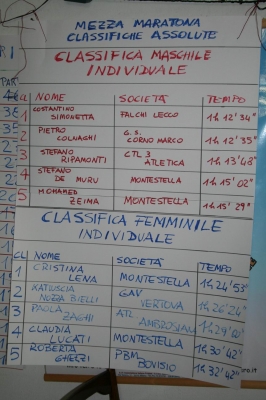 MEZZA MARATONA
CLASSIFICHE ASSOLUTE
CLASSIFICA MASCHILE
INDIVIDUALE
CL NOME SOCIETÀ TEMPO
1 COSTANTINO SIMONETTA FALCHI LECCO 1h 12'34"
2 PIETRO COLNAGHI G.S. CORNO MARCO 1h 12'35"
3 STEFANO RIPAMONTI CTL 3 ATLETICA 1h 13'48"
4 STEFANO DE MURU MONTESTELLA 1h 15'02"
5 MOHAMED ZEIMA MONTESTELLA 1h 15'29"
CLASSIFICA FEMMINILE
INDIVIDUALE
CL NOME SOCIETÀ TEMPO
1 CRISTINA LENA MONTESTELLA 1h 24'53"
2 KATIUSCIA NOZZA BIELLI GAV VERTOVA 1h 26'24"
3 PAOLA ZAGHI ATL AMBROSIANA 1h 29'
4 CLAUDIA LUCATI MONTESTELLA 1h 30'42"
5 ROBERTA GHEZZI PBM BOVISIO 1h 32'42"